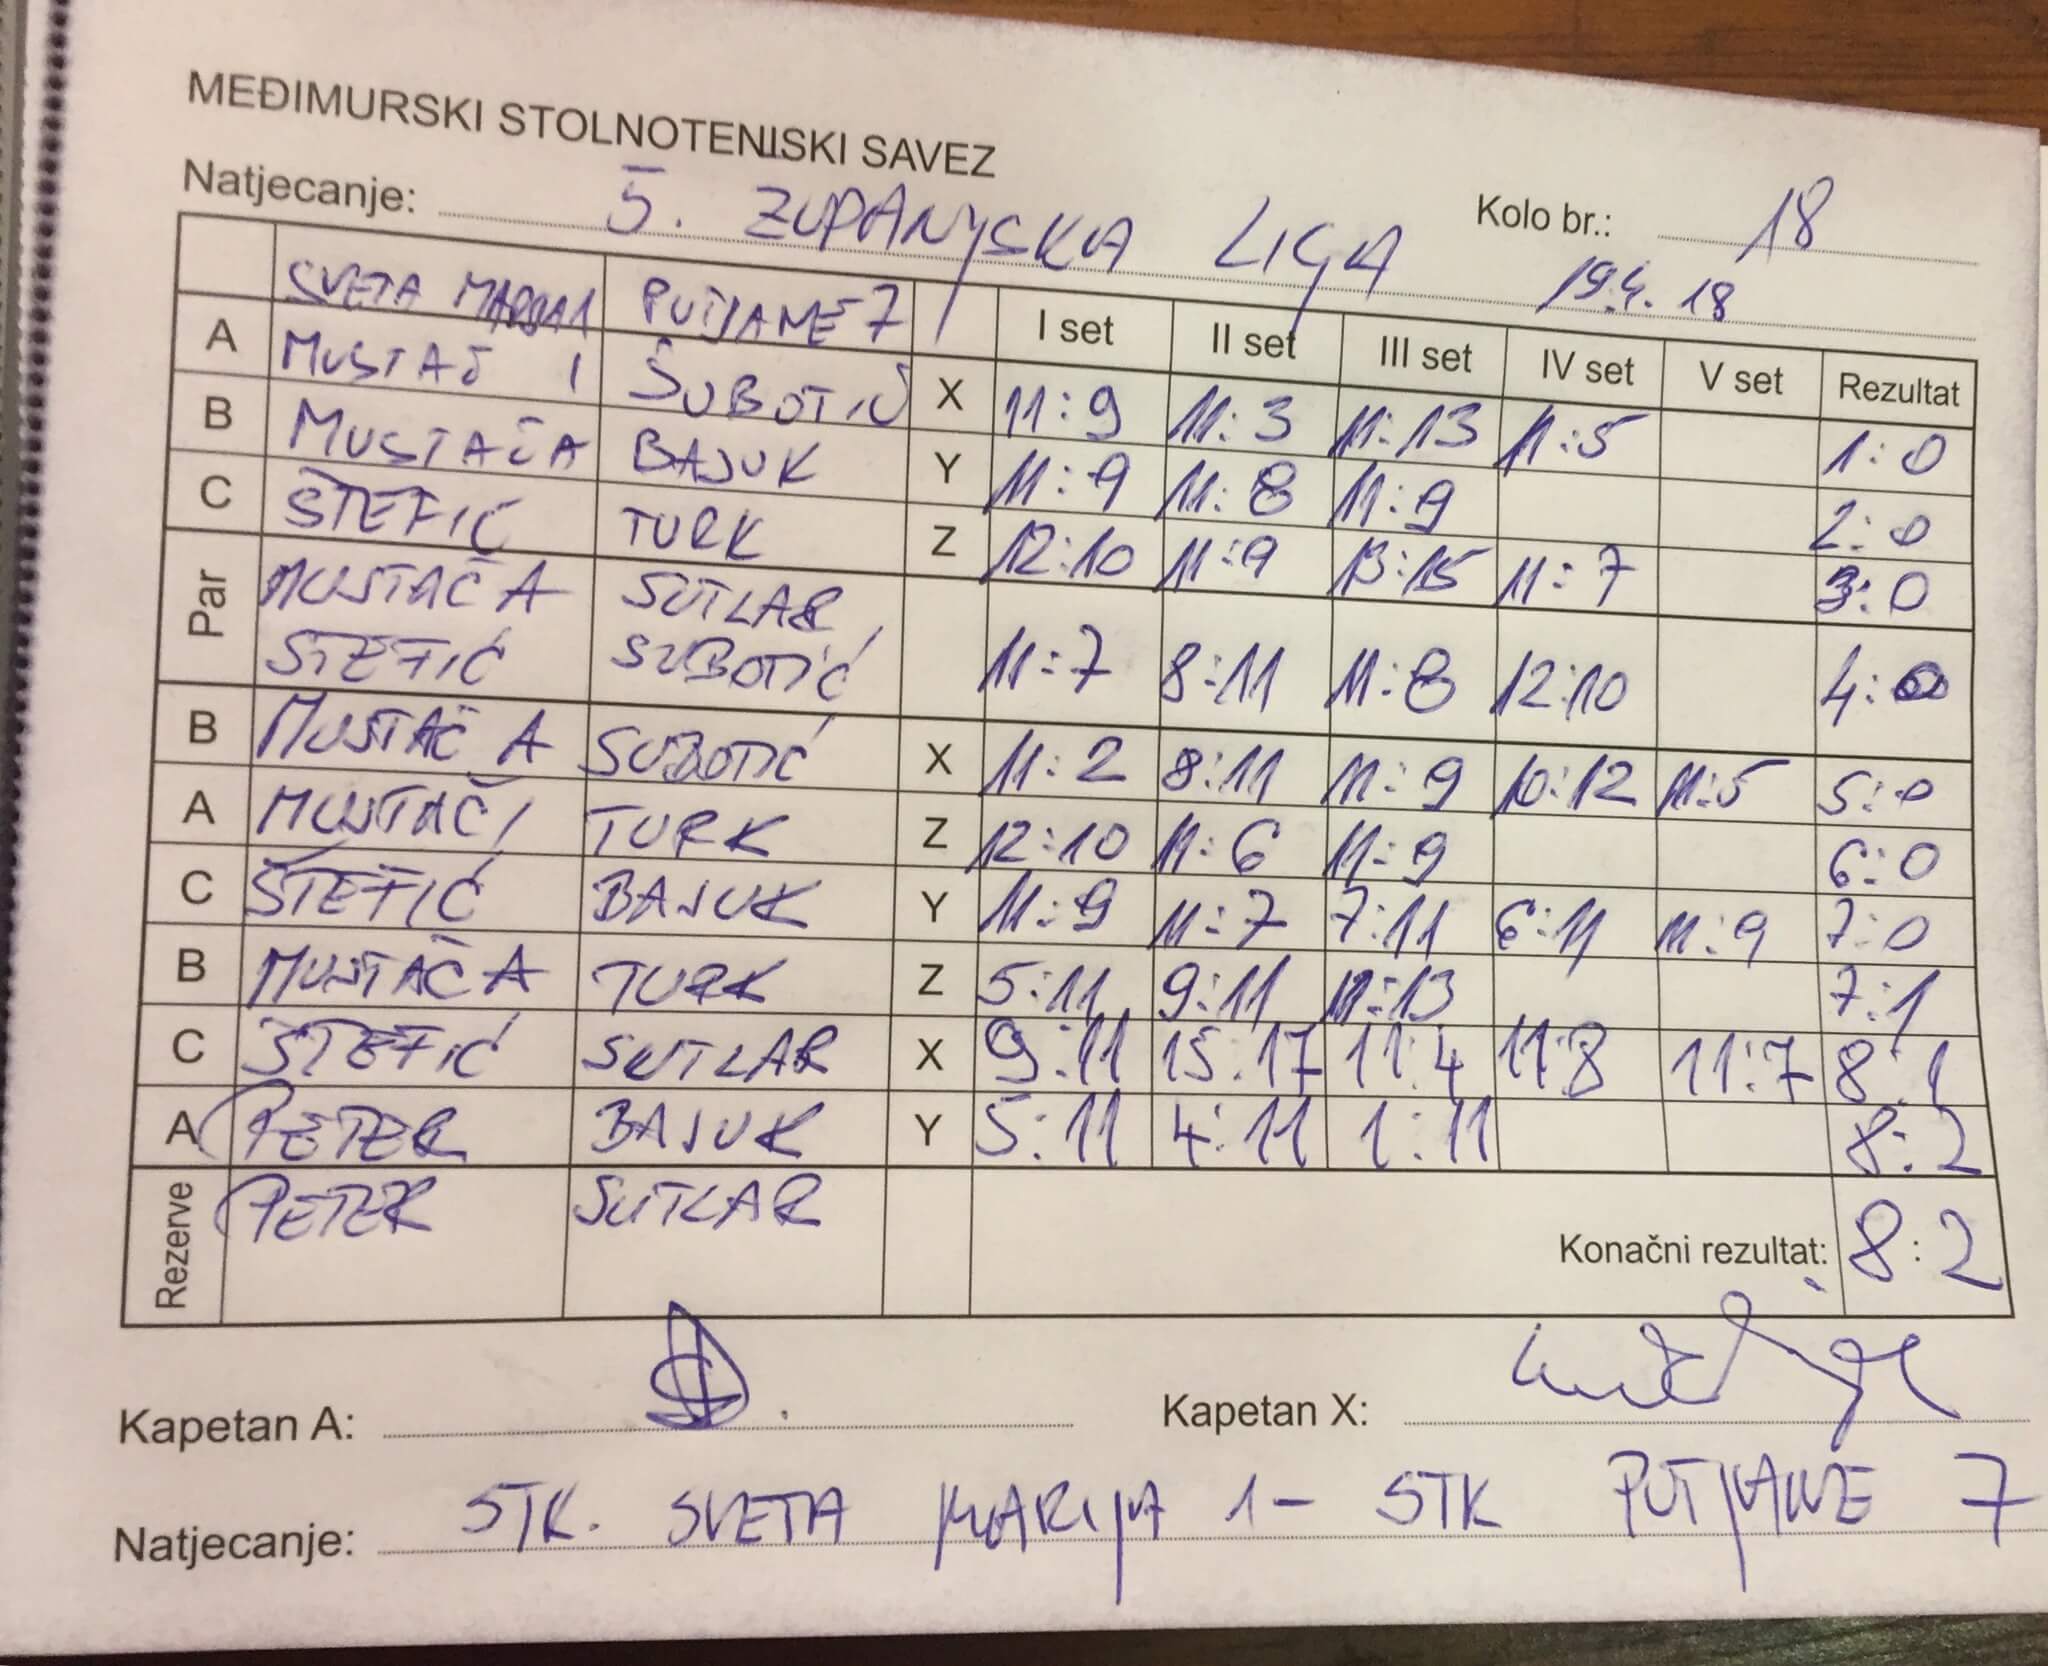 MEĐIMURSKI STOLNOTENISKI SAVEZ
Natjecanje: 5. ŽUPANIJSKA LIGA Kolo br.: 18
19.4.18
SVETA MARIJA 1 PUTJANE 7 I set II set III set IV set V set Rezultat
A MUSTAČ I ŠUBOTIĆ X 11:9 11:3 11:13 11:5 1:0
B MUSTAČ A BAJUK Y 11:9 11:8 11:9 2:0
C ŠTEFIĆ TURK Z 12:10 11:9 13:15 11:7 3:0
Par MUSTAČ A SUTLAR
ŠTEFIĆ SUBOTIĆ 11:7 8:11 11:8 12:10 4:0
B MUSTAČ A SUBOTIĆ X 11:2 8:11 11:9 10:12 11:5 5:0
A MUSTAČ I TURK Z 12:10 11:6 11:9 6:0
C ŠTEFIĆ BAJUK Y 11:9 11:7 7:11 6:11 11:9 7:0
B MUSTAČ A TURK Z 5:11 9:11 11:13 7:1
C ŠTEFIĆ SUTLAR X 9:11 15:17 11:4 11:8 11:7 8:1
A PETER BAJUK Y 5:11 4:11 1:11 8:2
Rezerve PETER SUTLAR
Konačni rezultat: 8:2
Kapetan A: Kapetan X:
Natjecanje: STK. SVETA MARIJA 1 - STK PUTJANE 7